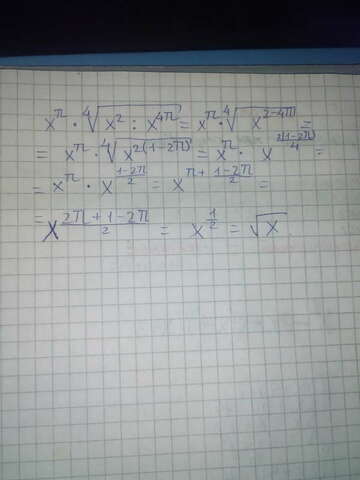 x^π · ⁴√(x² : x^(4π)) = x^π · ⁴√(x^(2-4π)) =
= x^π · ⁴√(x^(2(1-2π))) = x^π · x^(2(1-2π)/4) =
= x^π · x^((1-2π)/2) = x^(π + (1-2π)/2) =
= x^((2π+1-2π)/2) = x^(1/2) = √x